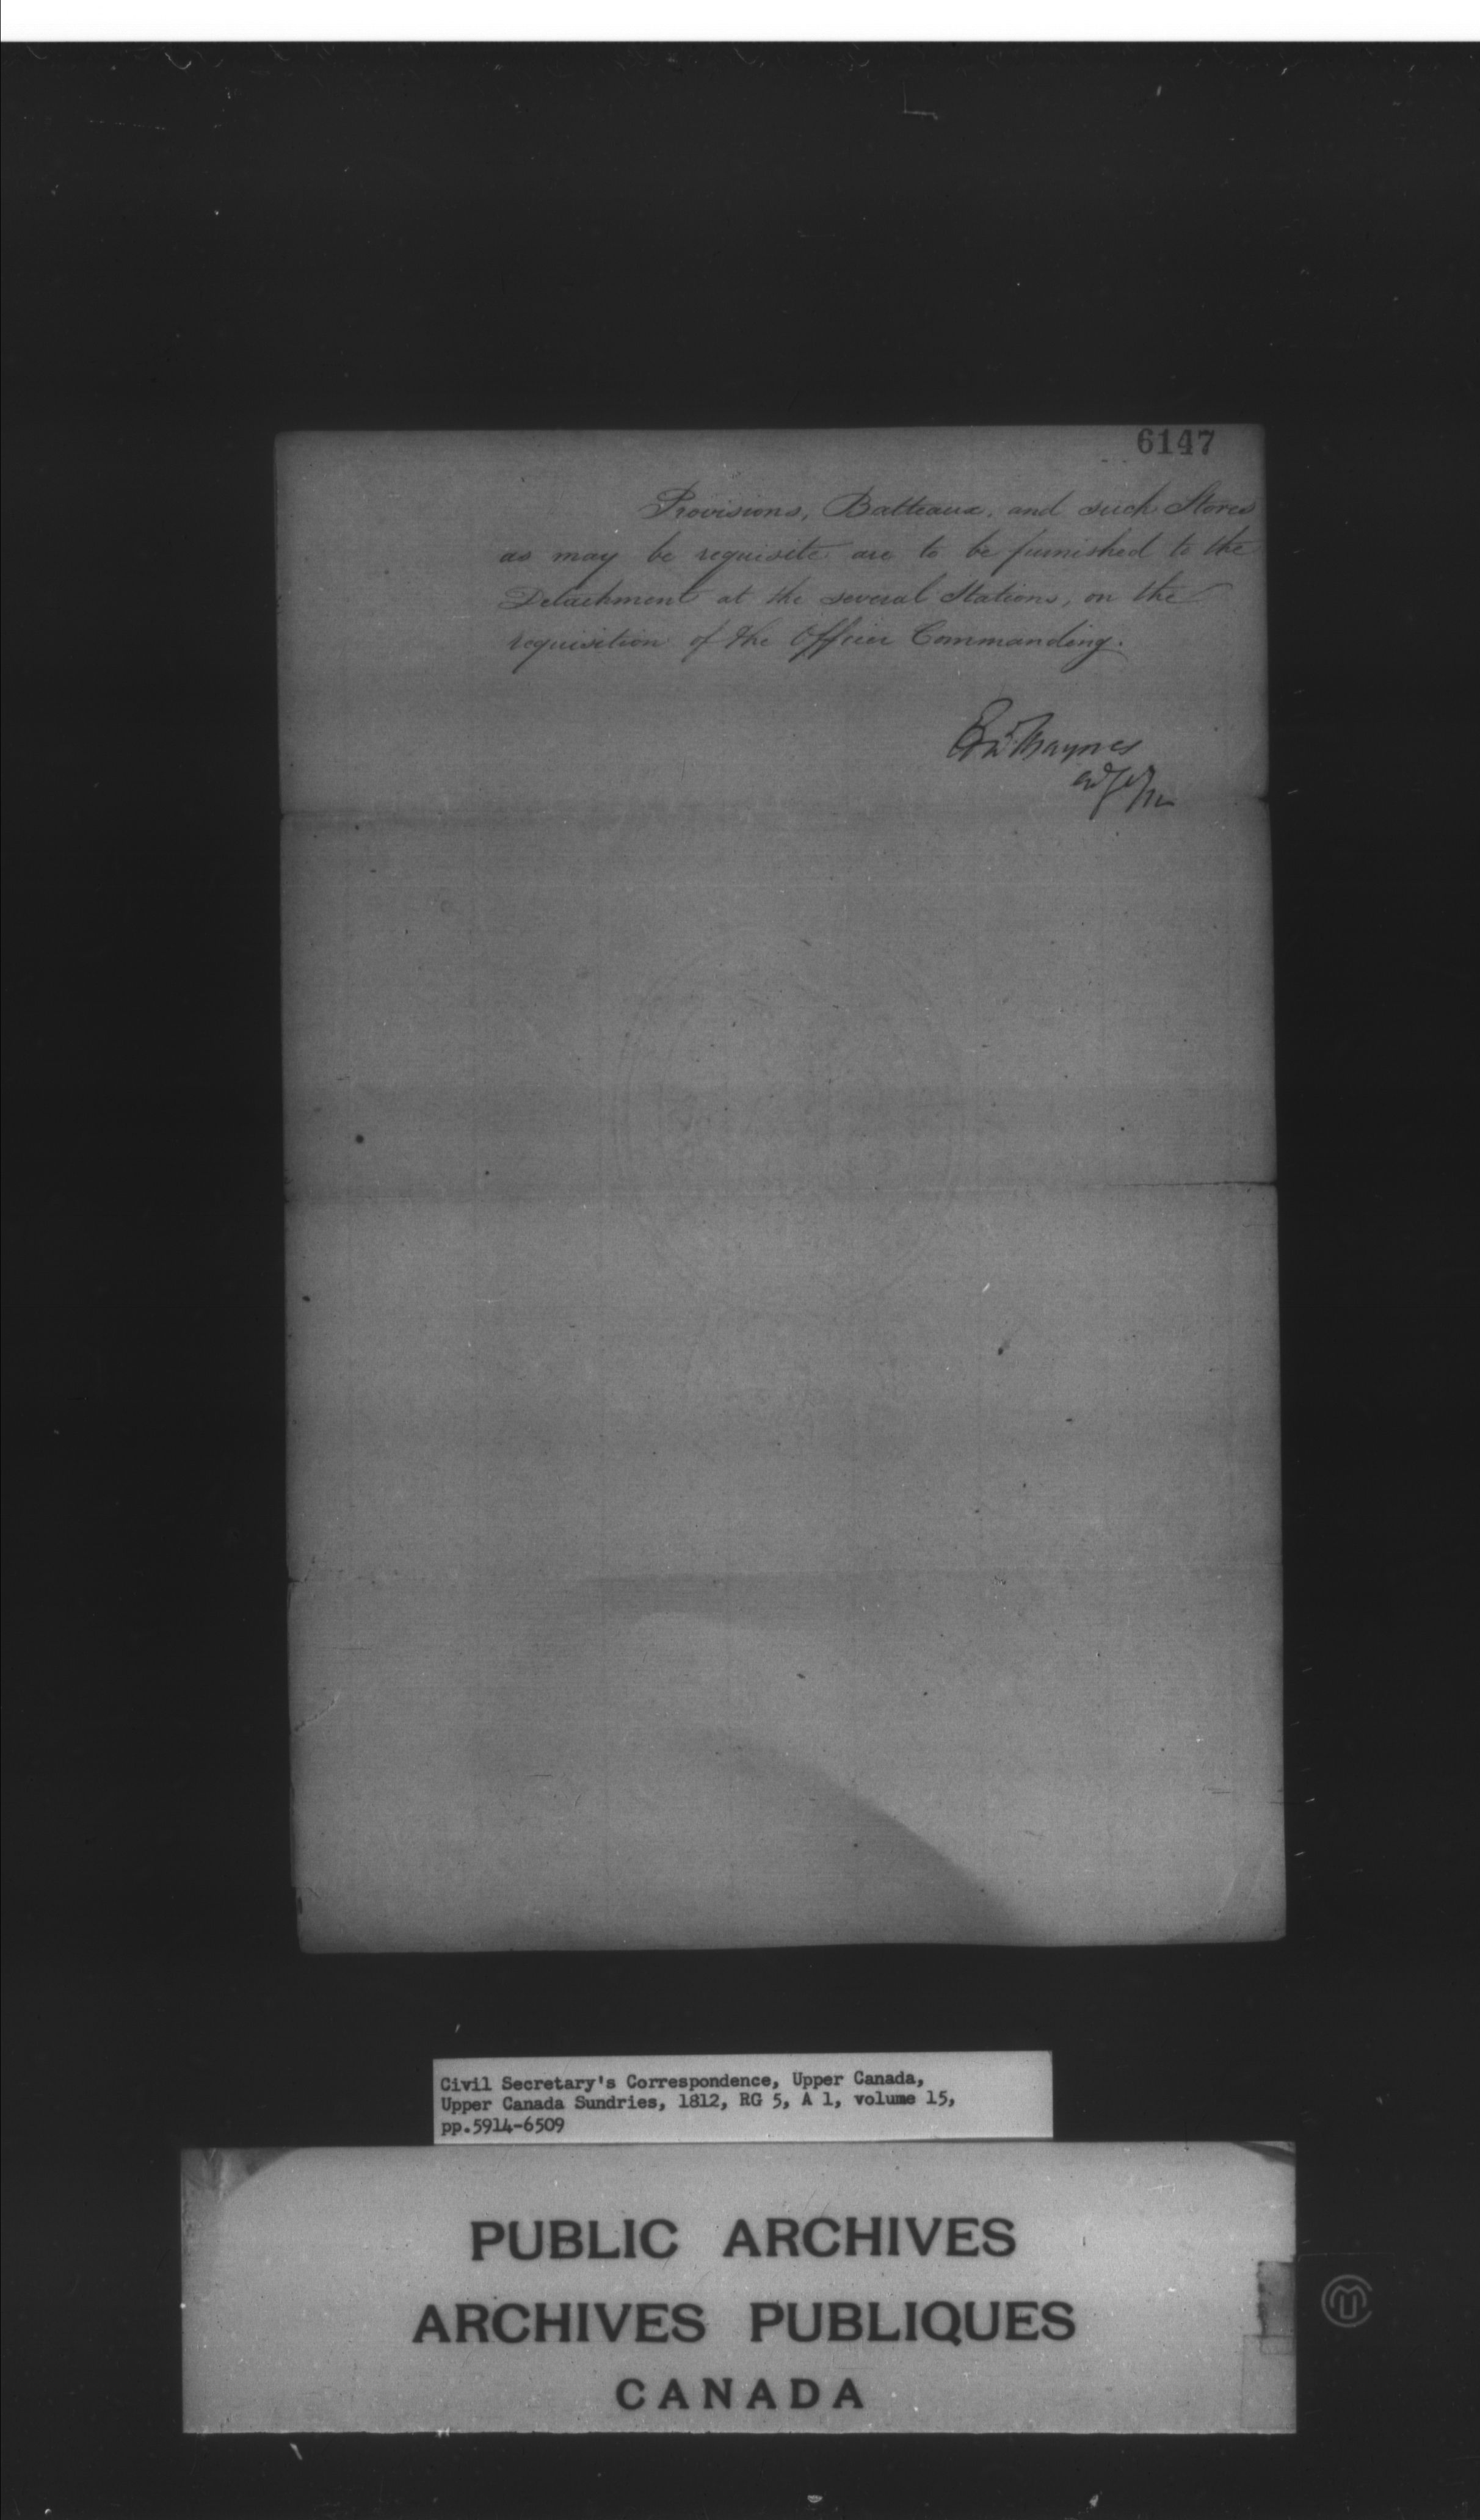 6147
Provisions, Batteaux, and such Stores
as may be requisite are to be furnished to the
Detachment at the several Stations, on the
requisition of the Officer Commanding.
Edw Baynes
Civil Secretary's Correspondence, Upper Canada,
Upper Canada Sundries, 1812, RG 5, A 1, volume 15,
pp.5914-6509
PUBLIC ARCHIVES
ARCHIVES PUBLIQUES
CANADA